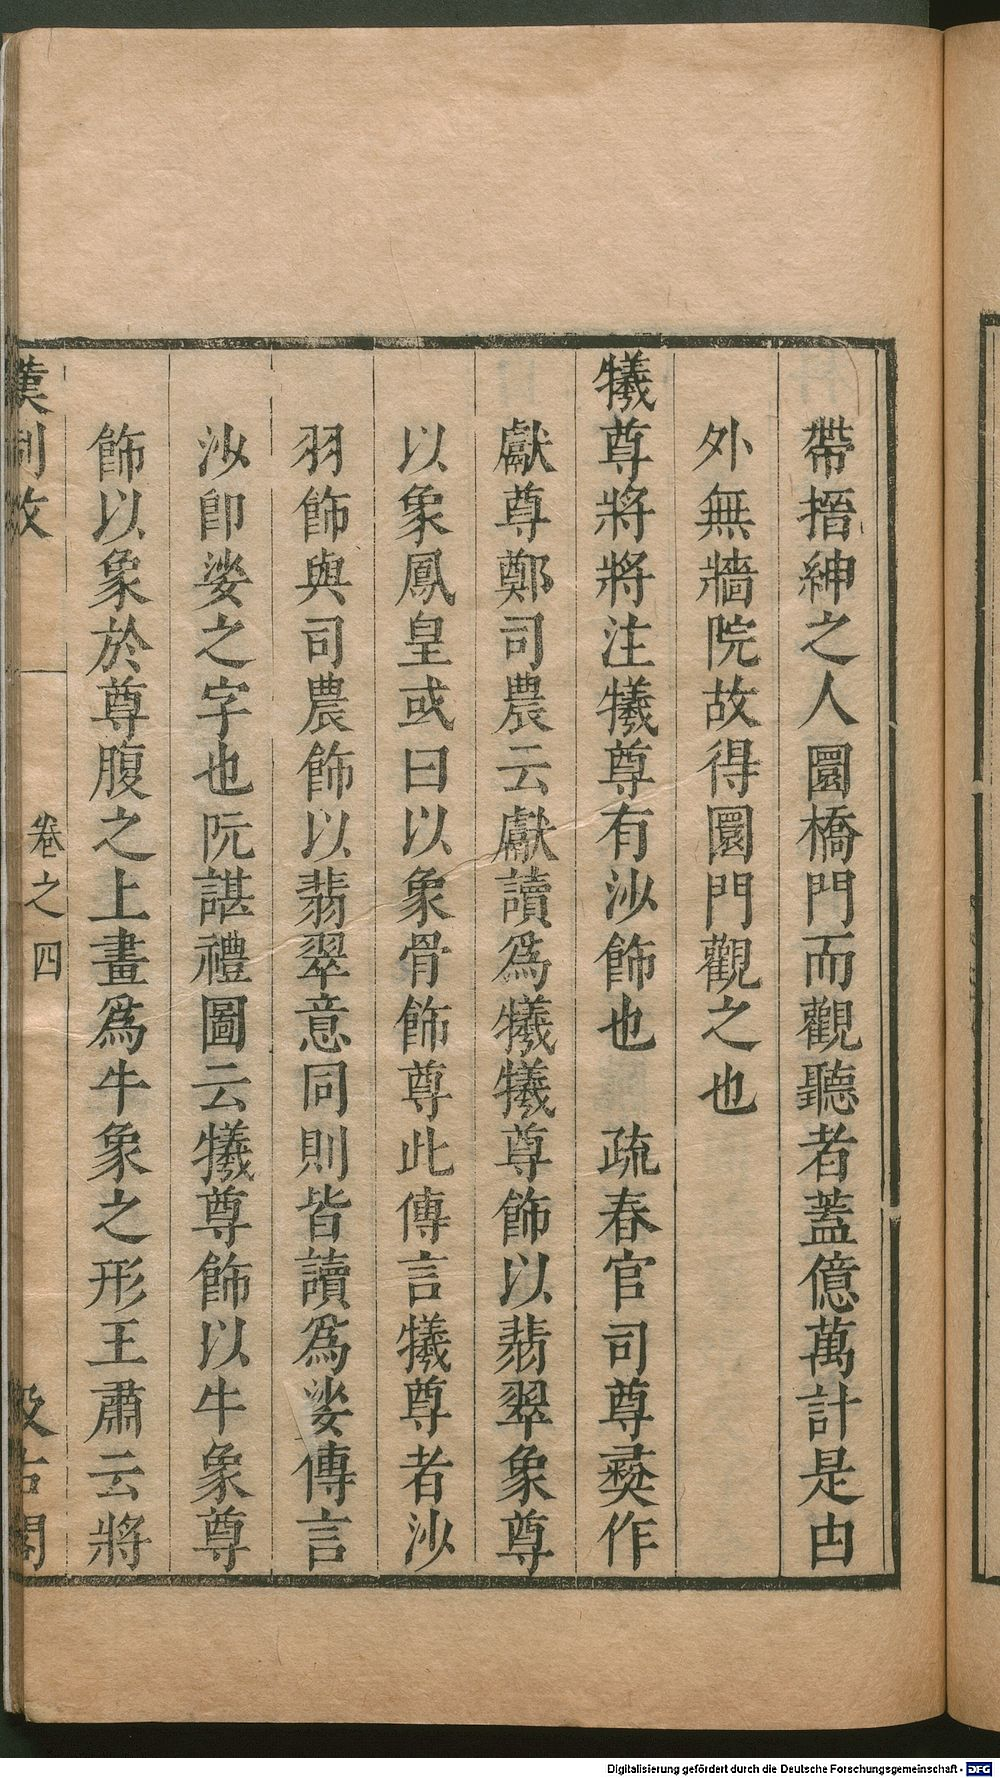 帶搢紳之人圜橋門而觀聽者蓋億萬計是由
外無牆院故得圜門觀之也
犧尊將將注犧尊有沙飾也　疏春官司尊彝作
獻尊鄭司農云獻讀為犧犧尊飾以翡翠象尊
以象鳳皇或曰以象骨飾尊此傳言犧尊者沙
羽飾與司農飾以翡翠意同則皆讀為娑傳言
沙卽娑之字也阮諶禮圖云犧尊飾以牛象尊
飾以象於尊腹之上畫為牛象之形王肅云將
漢制攷　卷之四　汲古閣
Digitalisierung gefördert durch die Deutsche Forschungsgemeinschaft - DFG